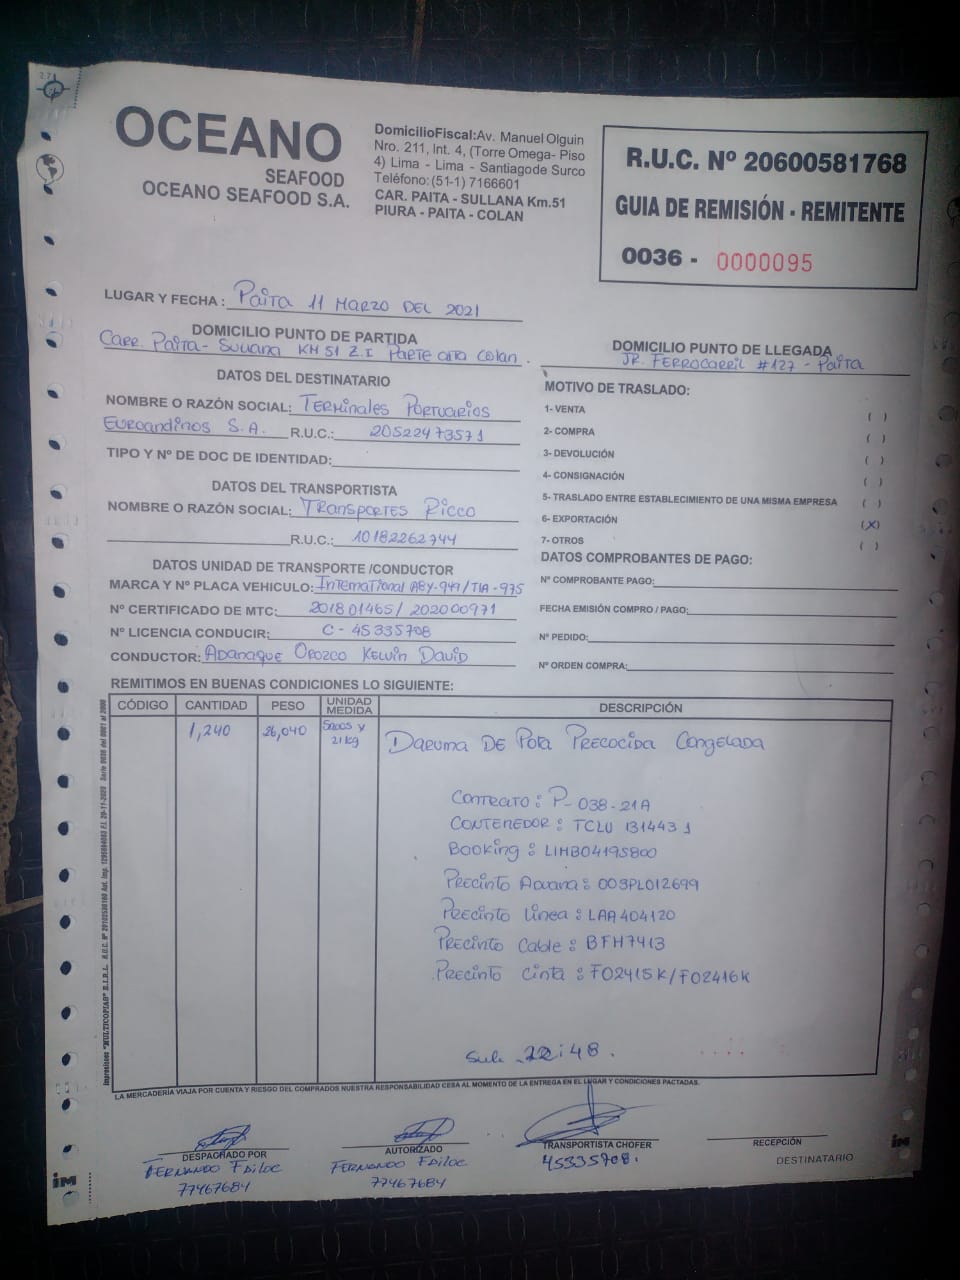 OCEANO
SEAFOOD
OCEANO SEAFOOD S.A.
DomicilioFiscal:Av. Manuel Olguin
Nro. 211, Int. 4, (Torre Omega- Piso
4) Lima - Lima - Santiagode Surco
Teléfono:(51-1) 7166601
CAR. PAITA - SULLANA Km.51
PIURA - PAITA - COLAN
R.U.C. Nº 20600581768
GUIA DE REMISIÓN - REMITENTE
0036 - 0000095
LUGAR Y FECHA : Paita 11 Marzo DEL 2021
DOMICILIO PUNTO DE PARTIDA
Carr. Paita- Sullana KM 51 Z.I Parte alta Colan.
DOMICILIO PUNTO DE LLEGADA
JR. Ferrocarril #127 - Paita
DATOS DEL DESTINATARIO
NOMBRE O RAZÓN SOCIAL: Terminales Portuarios
Euroandinos S.A. R.U.C.: 20522473571
TIPO Y Nº DE DOC DE IDENTIDAD:
DATOS DEL TRANSPORTISTA
NOMBRE O RAZÓN SOCIAL: Transportes Ricco
R.U.C.: 10182262744
DATOS UNIDAD DE TRANSPORTE /CONDUCTOR
MARCA Y Nº PLACA VEHICULO: International A8Y-949/T1A-975
Nº CERTIFICADO DE MTC: 201801465/ 202000971
Nº LICENCIA CONDUCIR: C-45335708
CONDUCTOR: Adanaque Orozco Kelvin David
MOTIVO DE TRASLADO:
1- VENTA ( )
2- COMPRA ( )
3- DEVOLUCIÓN ( )
4- CONSIGNACIÓN ( )
5- TRASLADO ENTRE ESTABLECIMIENTO DE UNA MISMA EMPRESA ( )
6- EXPORTACIÓN (X)
7- OTROS ( )
DATOS COMPROBANTES DE PAGO:
Nº COMPROBANTE PAGO:
FECHA EMISIÓN COMPRO / PAGO:
Nº PEDIDO:
Nº ORDEN COMPRA:
REMITIMOS EN BUENAS CONDICIONES LO SIGUIENTE:
CÓDIGO CANTIDAD PESO UNIDAD MEDIDA DESCRIPCIÓN
1,240 26,040 Sacos y 21kg Daruma De Pota Precocida Congelada
Contrato : P-038-21A
Contenedor : TCLU 131443 1
Booking : LIMB04195800
Precinto Aduana : 003PL012699
Precinto Linea : LAA404120
Precinto Cable : BFH7413
Precinto Cinta : F02415K/F02416K
22:48.
LA MERCADERÍA VIAJA POR CUENTA Y RIESGO DEL COMPRADOS NUESTRA RESPONSABILIDAD CESA AL MOMENTO DE LA ENTREGA EN EL LUGAR Y CONDICIONES PACTADAS.
DESPACHADO POR
Fernando
77467684
AUTORIZADO
Fernando
77467684
TRANSPORTISTA CHOFER
45335708.
RECEPCIÓN
DESTINATARIO
im
im